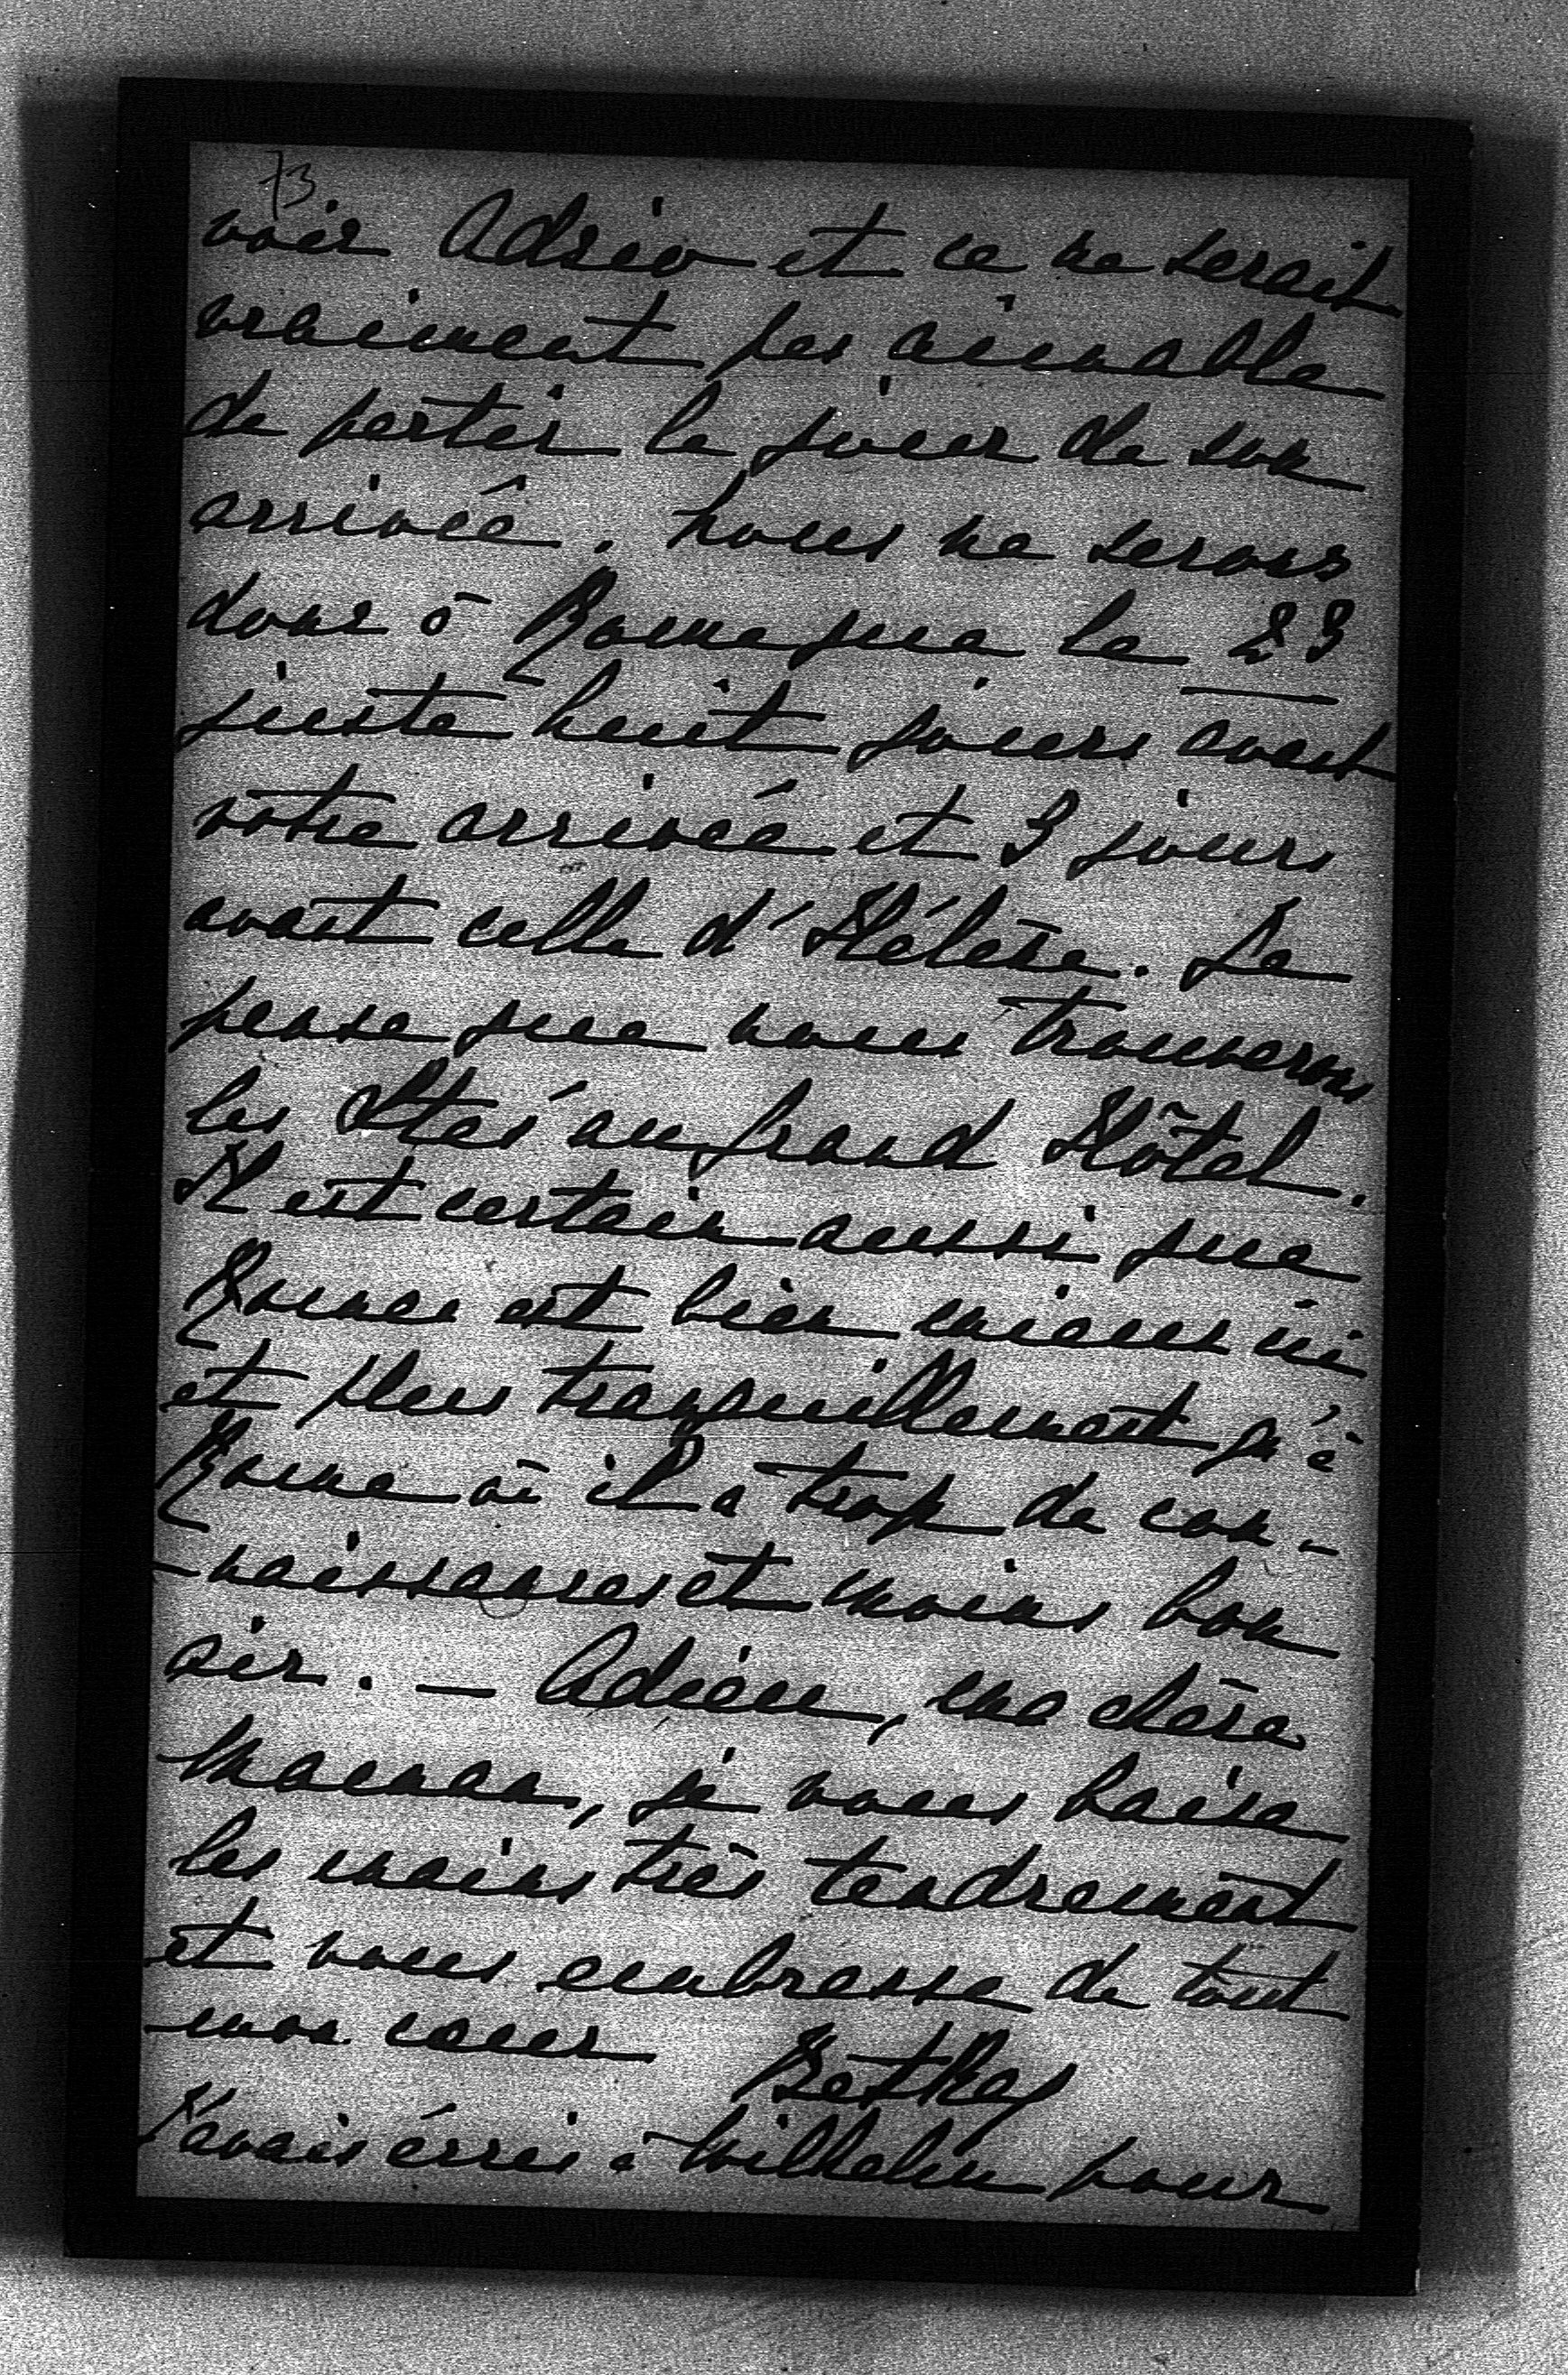 73
voir Adrio et ce ne serait
vraiment pas aimable
de partir le jour de son
arrivée. Nous ne serons
donc à Rome que le 23
juste huit jours avant
votre arrivée et 3 jours
avant celle d'Hélène. Je
pense que nous trouverons
les au grand Hôtel.
Il est certain aussi que
est bien mieux ici
et plus tranquillement qu'à
Rome où il a trop de con-
-naissances et moins bon
air. — Adieu, ma chère
Maman, je vous baise
les mains très tendrement
et vous embrasse de tout
mon coeur
J'avais écris à Wilhelm pour